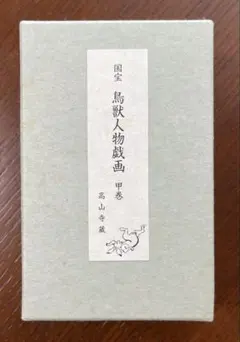 国宝
鳥獣人物戯画
甲巻
高山寺蔵